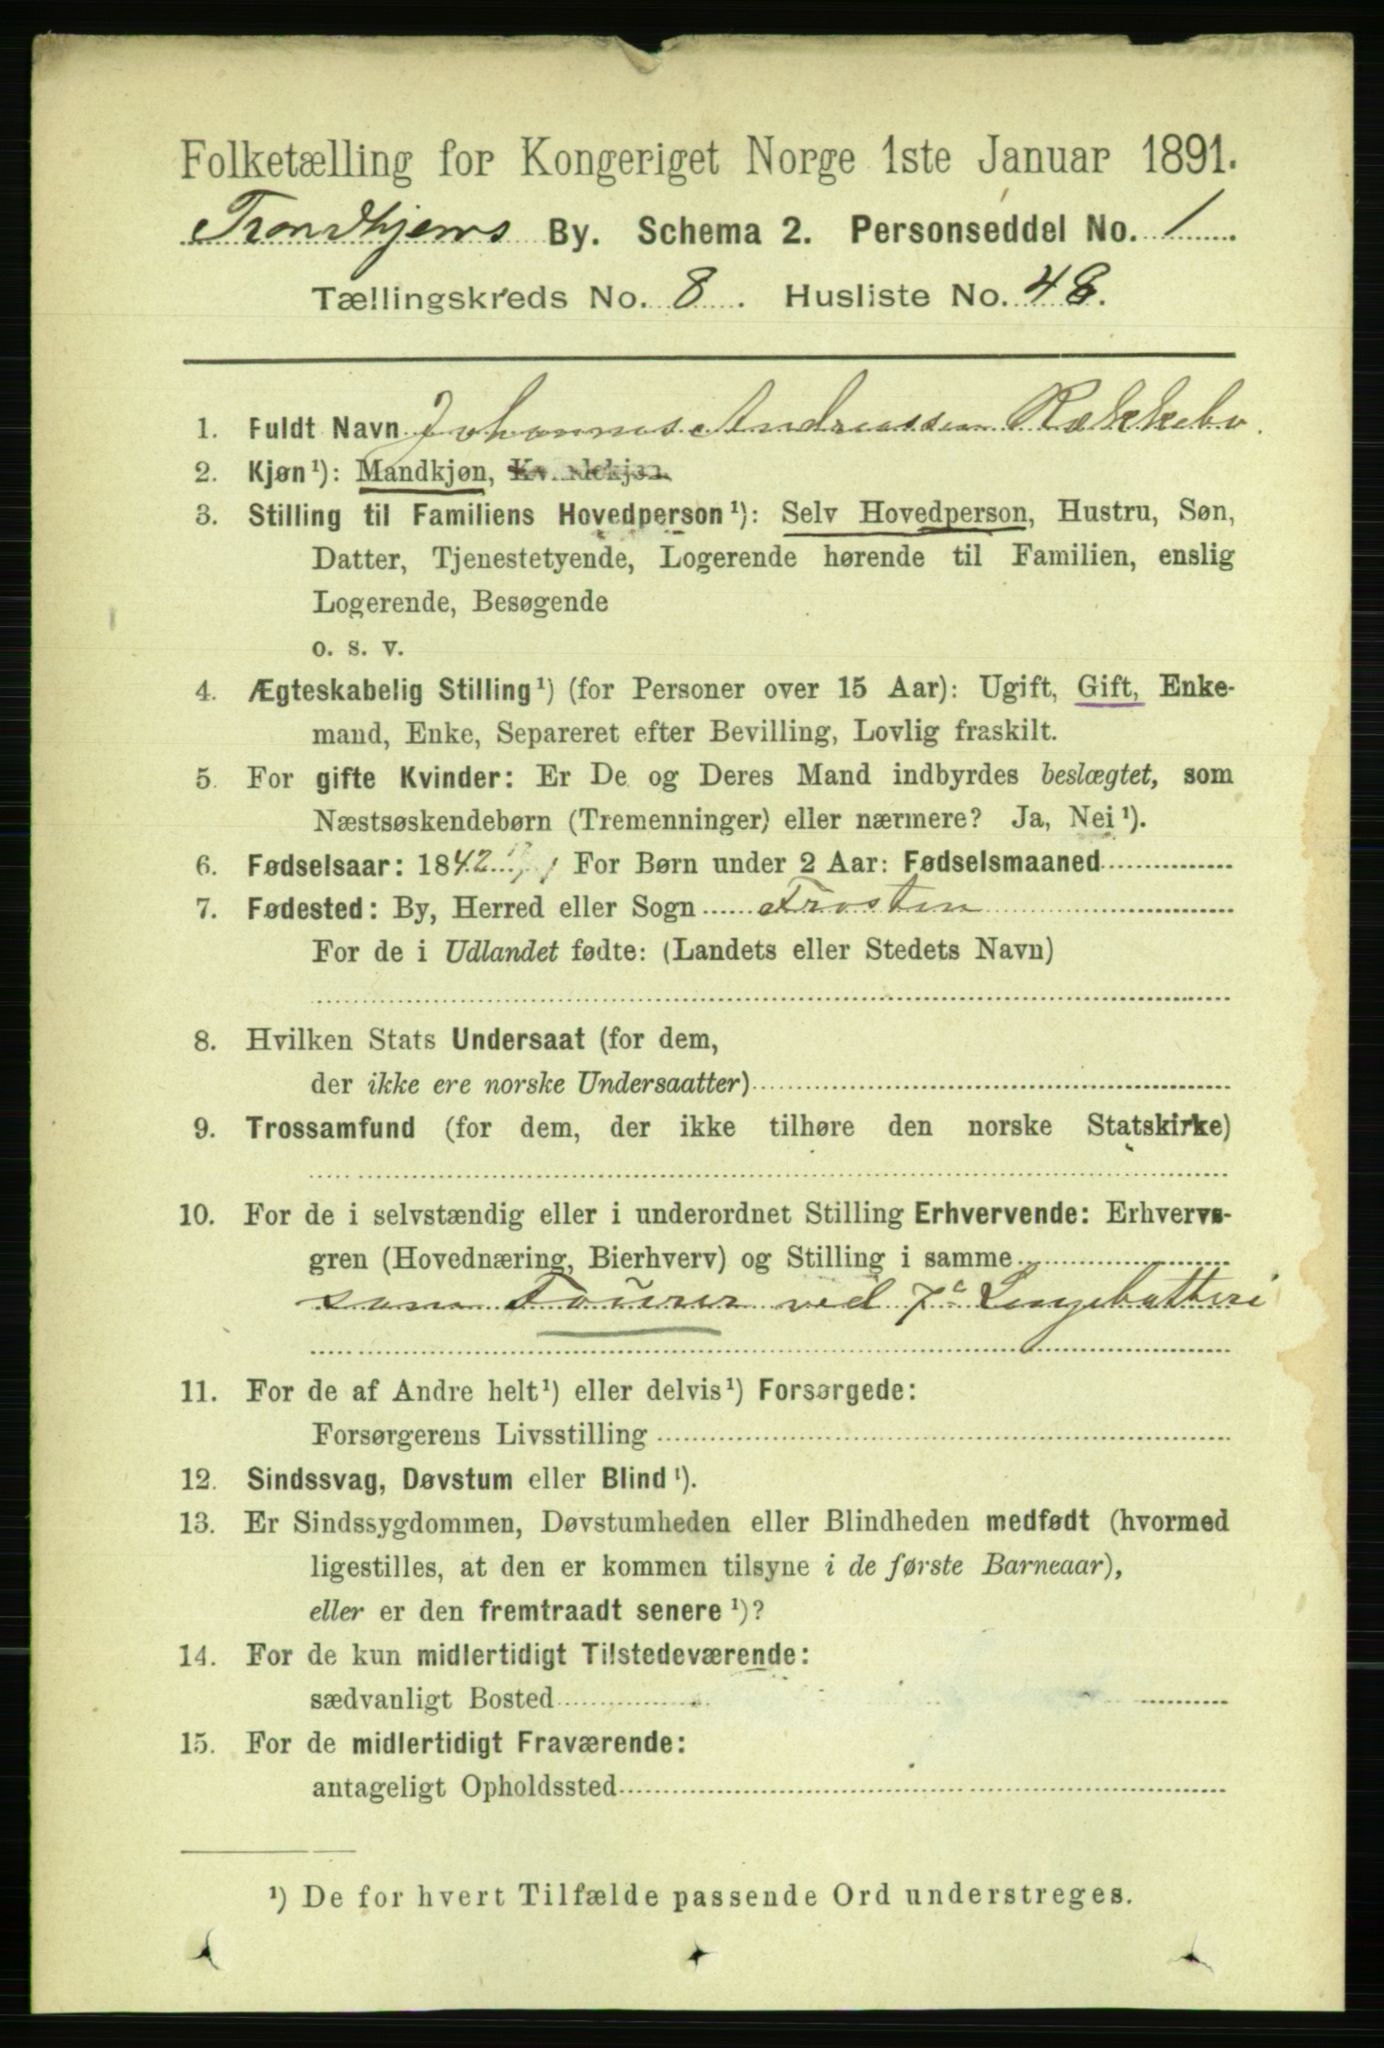 Folketælling for Kongeriget Norge 1ste Januar 1891.
Trondhjems By. Schema 2. Personseddel No. 1
Tællingskreds No. 8. Husliste No. 48.
1. Fuldt Navn Johannes Andreassen Rækkebo.
2. Kjøn¹): Mandkjøn, Kvindekjøn.
3. Stilling til Familiens Hovedperson¹): Selv Hovedperson, Hustru, Søn,
Datter, Tjenestetyende, Logerende hørende til Familien, enslig
Logerende, Besøgende
o. s. v.
4. Ægteskabelig Stilling¹) (for Personer over 15 Aar): Ugift, Gift, Enke-
mand, Enke, Separeret efter Bevilling, Lovlig fraskilt.
5. For gifte Kvinder: Er De og Deres Mand indbyrdes beslægtet, som
Næstsøskendebørn (Tremenninger) eller nærmere? Ja, Nei¹).
6. Fødselsaar: 1842 For Børn under 2 Aar: Fødselsmaaned
7. Fødested: By, Herred eller Sogn Frosten
For de i Udlandet fødte: (Landets eller Stedets Navn)
8. Hvilken Stats Undersaat (for dem,
der ikke ere norske Undersaatter)
9. Trossamfund (for dem, der ikke tilhøre den norske Statskirke)
10. For de i selvstændig eller i underordnet Stilling Erhvervende: Erhvervs-
gren (Hovednæring, Bierhverv) og Stilling i samme
som Fourer ved 7de Linjebatteri
11. For de af Andre helt¹) eller delvis¹) Forsørgede:
Forsørgerens Livsstilling
12. Sindssvag, Døvstum eller Blind¹).
13. Er Sindssygdommen, Døvstumheden eller Blindheden medfødt (hvormed
ligestilles, at den er kommen tilsyne i de første Barneaar),
eller er den fremtraadt senere¹)?
14. For de kun midlertidigt Tilstedeværende:
sædvanligt Bosted
15. For de midlertidigt Fraværende:
antageligt Opholdssted
¹) De for hvert Tilfælde passende Ord understreges.